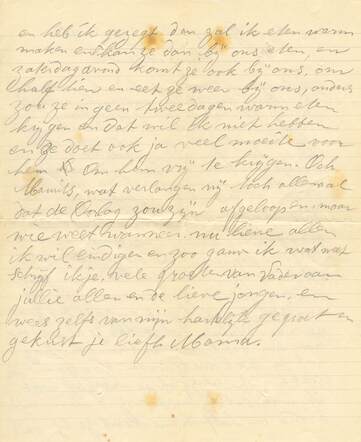 en heb ik gezegt dan zal ik eten warm
maken en kan ze dan bij ons eten en
zaterdagavond komt ze ook bij ons, om
half tien en eet ze weer bij ons, anders
zou ze in geen twee dagen warm eten
krijgen en dat wil ik niet hebben
en ze doet ook ja veel moeite voor
hem Om hem vrij te krijgen. Och
wat verlangen wij toch allemaal
dat de Oorlog zou zijn afgeloopen, maar
wie weet wanneer. nu lieve allen
ik wil eindigen en zoo gauw ik wat weet
schrijf ik je. vele groeten van Vader aan
jullie allen en de lieve jongen, en
wees zelfs van mijn hartelijk gegroet en
gekust je liefh Mama.